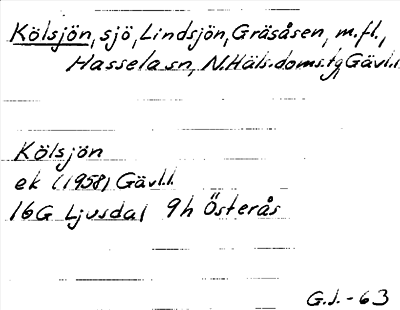 Kölsjön, sjö, Lindsjön, Gräsåsen, m.fl.,
Hassela sn, N.Häls.doms.tg, Gävl.l.
Kölsjön
ek (1958) Gävl.l.
16G Ljusdal 9h Österås
G.J.-63